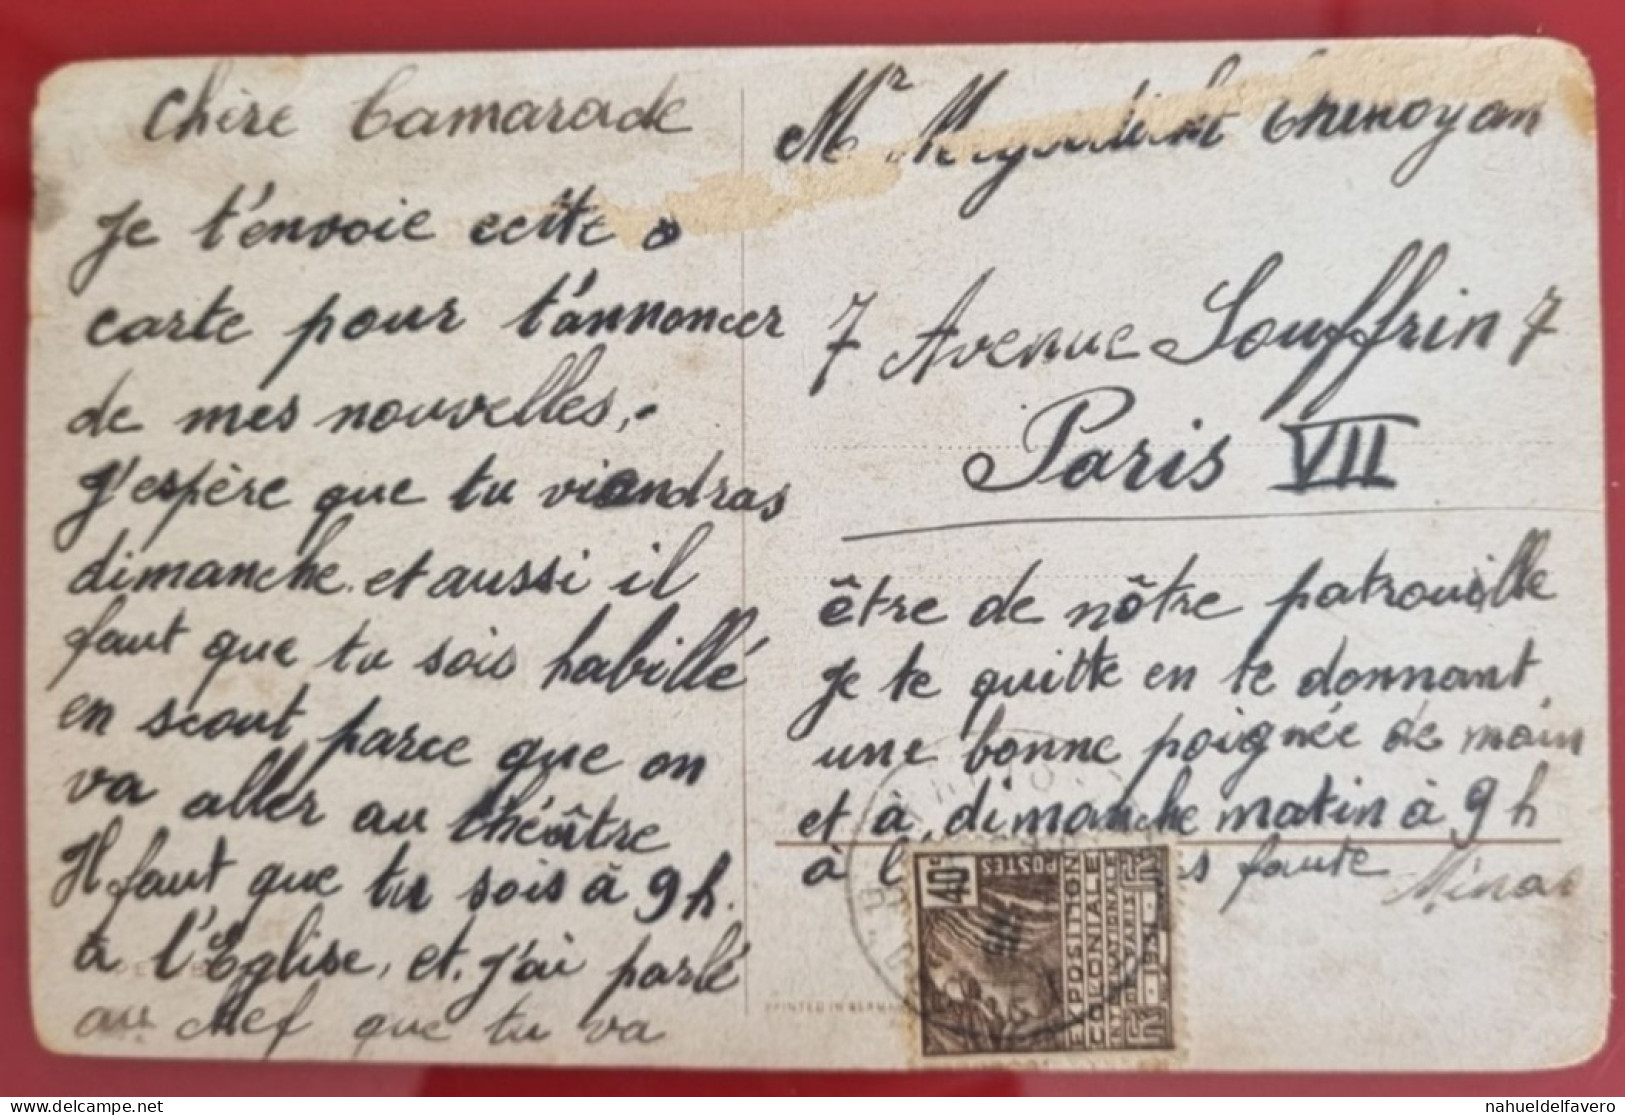 Chère Camarade
Je t'envoie cette
carte pour t'annoncer
de mes nouvelles,.
J'espère que tu viendras
dimanche et aussi il
faut que tu sois habillé
en scout parce que on
va aller au théâtre
Il faut que tu sois à 9h.
à l'Eglise, et j'ai parlé
au chef que tu va
Mr
7 Avenue Souffrin 7
Paris VII
être de nôtre patrouille
je te quitte en te donnant
une bonne poignée de main
et à dimanche matin à 9h
à faute
40c
POSTES
EXPOSITION
COLONIALE
INTERNATIONALE
DE PARIS
1931
PRINTED IN GERMA
nahueldelfavero